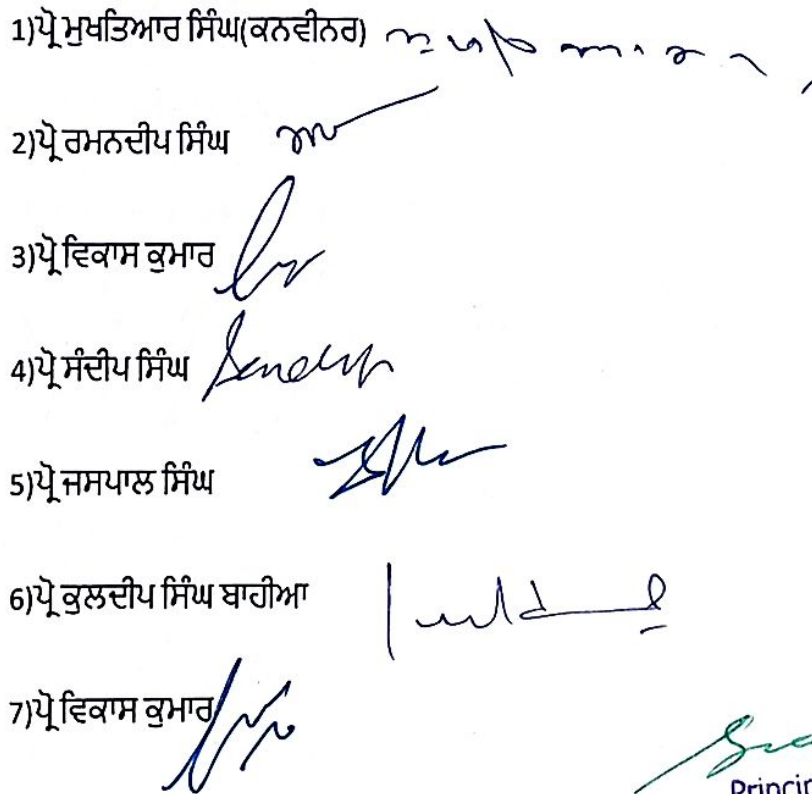 1)ਪ੍ਰੋ ਮੁਖਤਿਆਰ ਸਿੰਘ(ਕਨਵੀਨਰ)
2)ਪ੍ਰੋ ਰਮਨਦੀਪ ਸਿੰਘ
3)ਪ੍ਰੋ ਵਿਕਾਸ ਕੁਮਾਰ
4)ਪ੍ਰੋ ਸੰਦੀਪ ਸਿੰਘ
5)ਪ੍ਰੋ ਜਸਪਾਲ ਸਿੰਘ
6)ਪ੍ਰੋ ਕੁਲਦੀਪ ਸਿੰਘ ਬਾਹੀਆ
7)ਪ੍ਰੋ ਵਿਕਾਸ ਕੁਮਾਰ